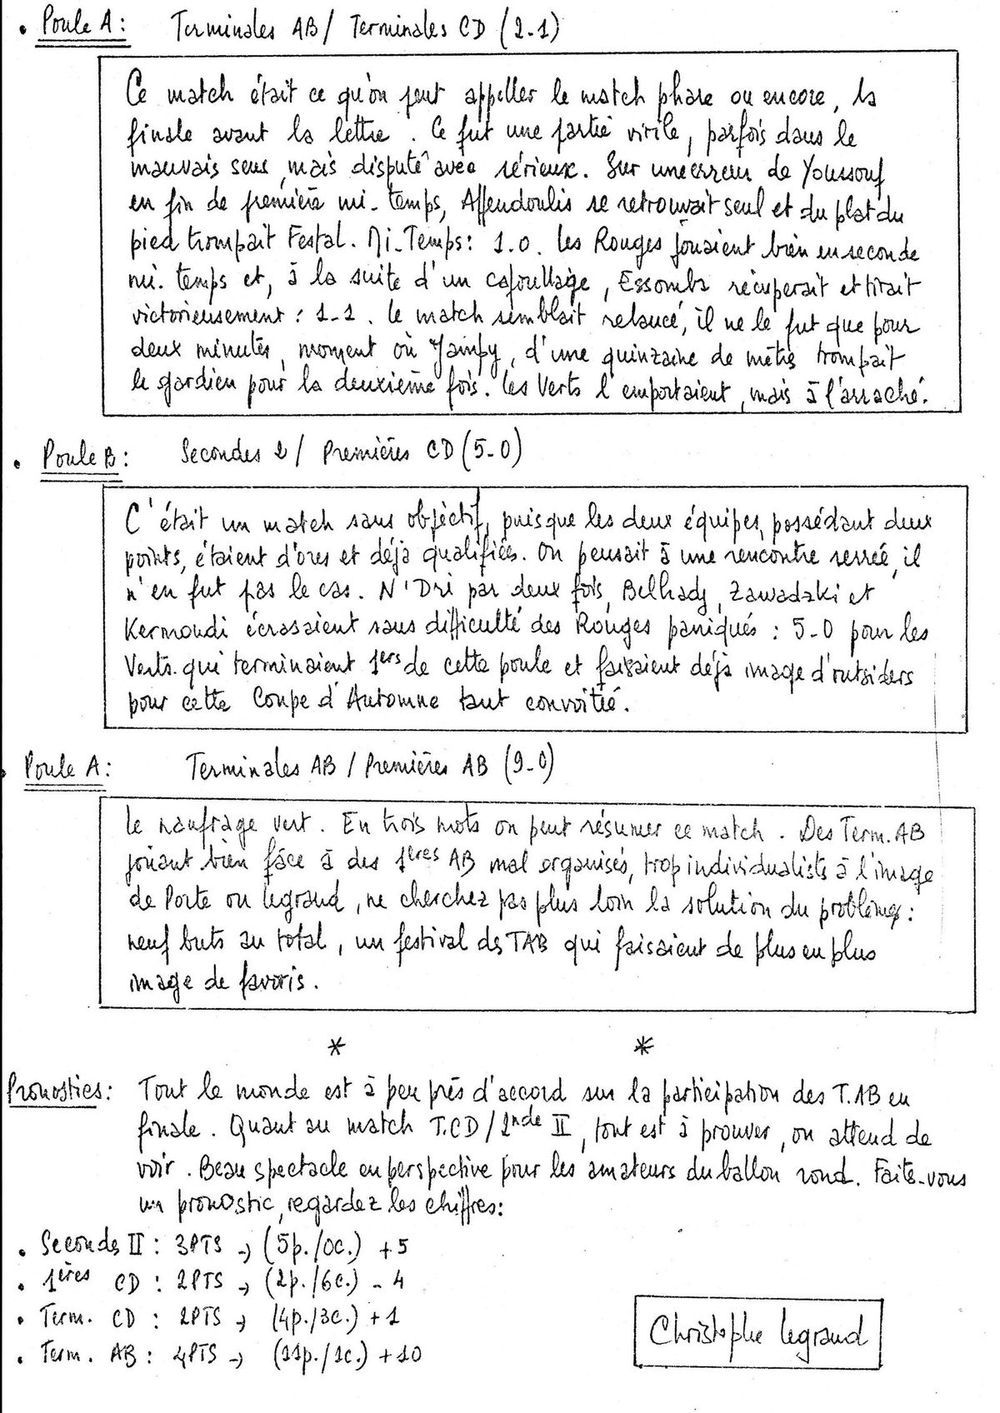 • Poule A: Terminales AB / Terminales CD (2-1)
Ce match était ce qu'on peut appeller le match phare ou encore, la
finale avant la lettre. Ce fut une partie virile, parfois dans le
mauvais sens, mais disputé avec sérieux. Sur une erreur de Youssouf
en fin de première mi-temps, Affendoulis se retrouvait seul et du plat du
pied trompait Festal. Mi-Temps: 1.0. Les Rouges jouaient bien en seconde
mi-temps et, à la suite d'un cafouillage, Essomba récuperait et tirait
victorieusement : 1-1. Le match semblait relancé, il ne le fut que pour
deux minutes, moment où Jampy, d'une quinzaine de mètres trompait
le gardien pour la deuxième fois. Les Verts l'emportaient, mais à l'arraché.
• Poule B: Secondes 2 / Premières CD (5-0)
C'était un match sans objectif, puisque les deux équipes, possédant deux
points, étaient d'ores et déjà qualifiées. On pensait à une rencontre serrée, il
n'en fut pas le cas. N'Dri par deux fois, Belhadj, Zawadzki et
Kermoudi écrasaient sans difficulté des Rouges paniqués : 5-0 pour les
Verts qui terminaient 1ers de cette poule et faisaient déjà image d'outsiders
pour cette Coupe d'Automne tant convoitée.
• Poule A: Terminales AB / Premières AB (9-0)
Le naufrage vert. En trois mots on peut résumer ce match. Des Term. AB
jouant bien face à des 1ères AB mal organisés, trop individualiste à l'image
de Porte ou Legrand, ne cherchez pas plus loin la solution du problème:
neuf buts au total, un festival des TAB qui faisaient de plus en plus
image de favoris.
* *
Pronostics: Tout le monde est à peu près d'accord sur la participation des T.AB en
finale. Quant au match T.CD / 2nde II, tout est à prouver, on attend de
voir. Beau spectacle en perspective pour les amateurs du ballon rond. Faites-vous
un pronostic, regardez les chiffres:
• Seconde II : 3PTS → (5p./0c.) +5
• 1ères CD : 2PTS → (2p./6c.) - 4
• Term. CD : 2PTS → (4p./3c.) +1
• Term. AB : 4PTS → (11p./1c.) +10
Christophe Legrand